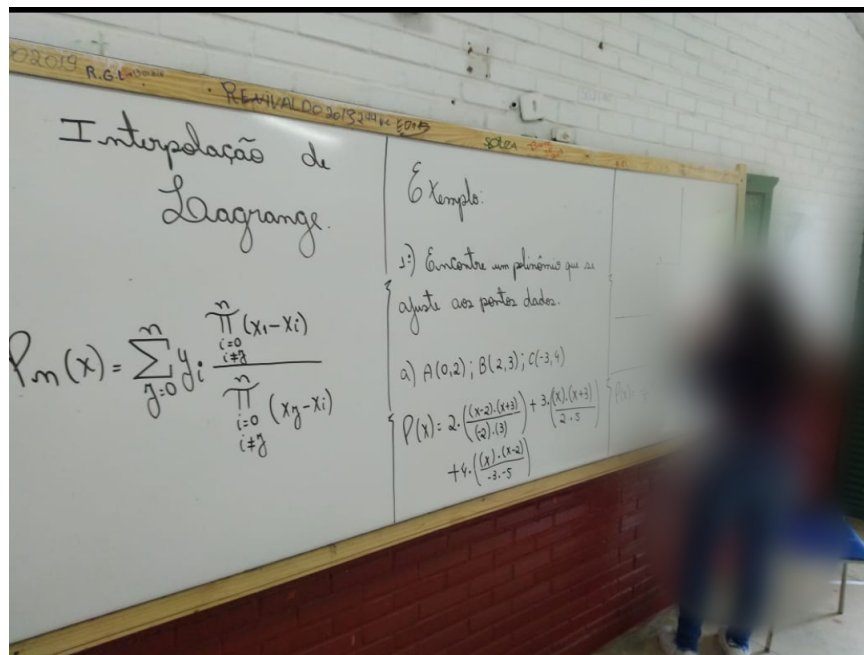 02019
R.G.L
REVIVALDO 2019
Interpolação de
Lagrange.
Pn(x) = n∑j=0 yi n∏i=0 i≠j (x1-xi) / n∏i=0 i≠j (xj-xi)
Exemplo:
1º) Encontre um polinômio que se
ajuste aos pontos dados.
a) A(0,2); B(2,3); C(-3,4)
P(x) = 2·((x-2)·(x+3)/(-2)·(3)) + 3·((x)·(x+3)/2·5)
+4·((x)·(x-2)/-3·-5)
P(x)